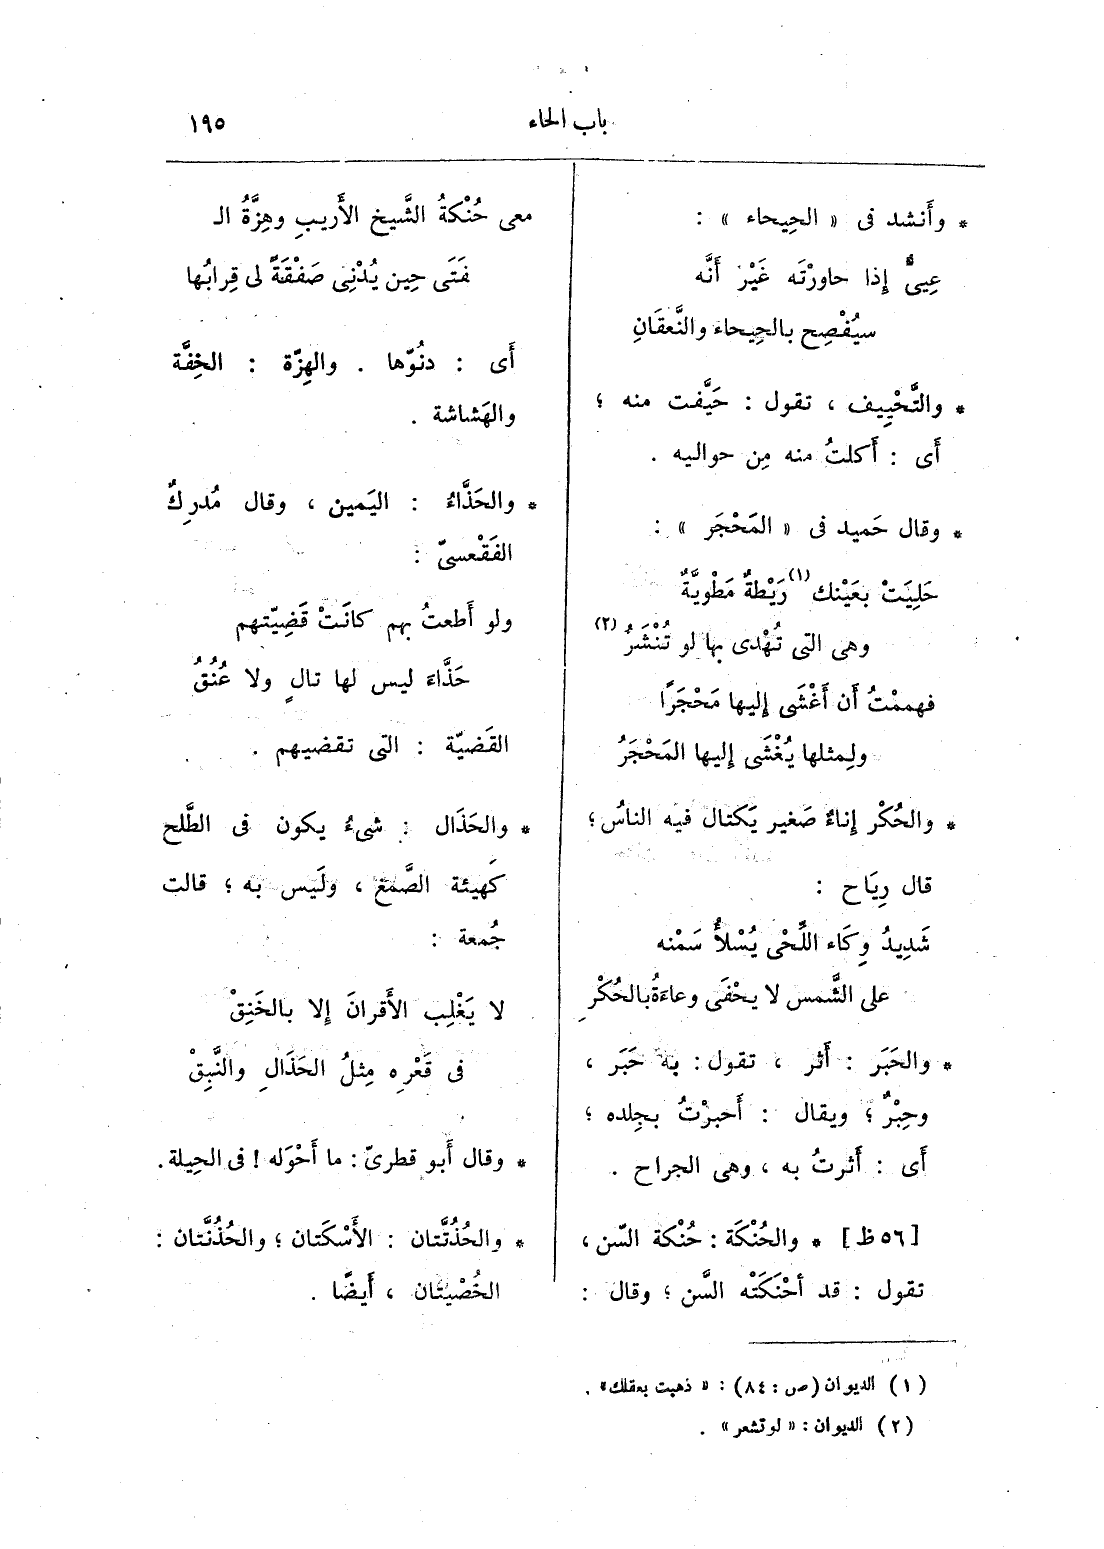 باب الحاء
١٩٥
* وأَنشد فى « الحِيحاء » :
عِيىٌّ إِذا حاورْتَه غَيْرَ أَنَّه
سيُفْصِح بالحِيحاء والنَّعقَانِ
* والتَّحْيِيف ، تقول : حَيَّفت منه ؛
أَى : أَكلتُ منه مِن حواليه .
* وقال حَميد فى « المَحْجَر » :
حَلِيَتْ بعَيْنك (١) رَيْطةٌ مَطْويَّةٌ
وهى التى تُهْدى بها لو تُنْشَرُ (٢)
فهممْتُ أَن أَغْشَى إِليها مَحْجَرًا
ولِمثلها يُغْشَى إِليها المَحْجَرُ
* والحُكْر إِناءٌ صَغير يَكتال فيه الناسُ ؛
قال رِيَاح :
شَدِيدُ وِكَاء اللَّحْى يُسْلأُ سَمْنه
على الشَّمس لا يخْفَى وعاءَةُ بالحُكْرِ
* والحَبَر : أَثر ، تقول : به حَبَر ،
وحِبْرٌ ؛ ويقال : أَحبرْتُ بجِلده ؛
أَى : أَثرتُ به ، وهى الجراح .
[٥٦ ظ] * والحُنْكَة : حُنْكة السّن ،
تقول : قد أحْنَكَتْه السَّن ؛ وقال :
معى حُنْكةُ الشَّيخ الأَريبِ وهِزَّةُ الـ
فَتَى حِين يُدْنِى صَفْقَةً لى قِرابُها
أَى : دنُوّها . والهِزّة : الخِفَّة
والهَشاشة .
* والحَذَّاءُ : اليَمين ، وقال مُدرِكٌ
الفَقْعسىّ :
ولو أَطعتُ بهم كانَتْ قَضِيّتهم
حَذَّاءَ ليس لها تالٍ ولا عُنُقُ
القَضيّة : التى تقضيهم .
* والحَذَال : شىءُ يكون فى الطَّلح
كَهيئة الصَّمغ ، ولَيس به ؛ قالت
جُمعة :
لا يَغْلِب الأَقرانَ إِلا بالخَنِقْ
فى قَعْرِه مِثلُ الحَذَالِ والنَّبِقْ
* وقال أَبو قطرىّ : ما أَحْوَله ! فى الحِيلة .
* والحُذُنَّتان : الأَسْكَتان ؛ والحُذُنَّتان :
الخُصْيتَان ، أَيضًا .
(١) الديوان (ص : ٨٤) : « ذهبت بعقلك» .
(٢) الديوان : « لو تشعر » .